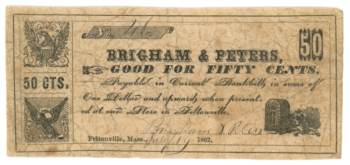 BRIGHAM & PETERS,
50
GOOD FOR FIFTY CENTS,
50 CTS.
Payable in Current Bankbills in sums of
One Dollar and upwards when present-
ed at our Store in Feltonville.
Feltonville, Mass. 1862.